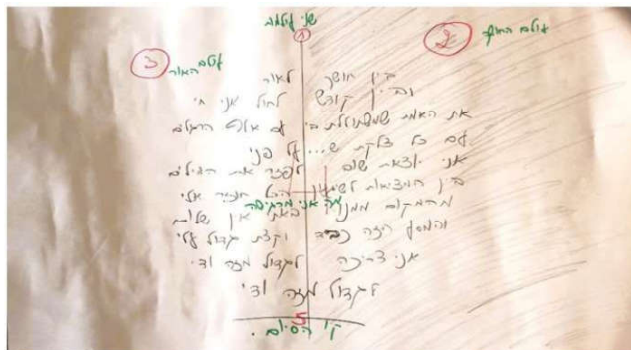 שני עולמות
1
עולם החושך
2
עולם האור
3
בין חושך לאור
ובין קודש לחול אני חי
את האמת שמשתוללת בי עם אלפי הרגלים
עם כל צלקת ש... על פני
אני יוצאת שום לפזר את הגילים
בין המציאות לשיגעון הכל חוזר אלי
מה אני מרגישה
מהמקום ממנו באתי אין שלום
והמסע הזה כבד וקצת גדול עלי
אני צריכה לגדול מזה ודי
לגדול מזה ודי
5
קו הסיום.